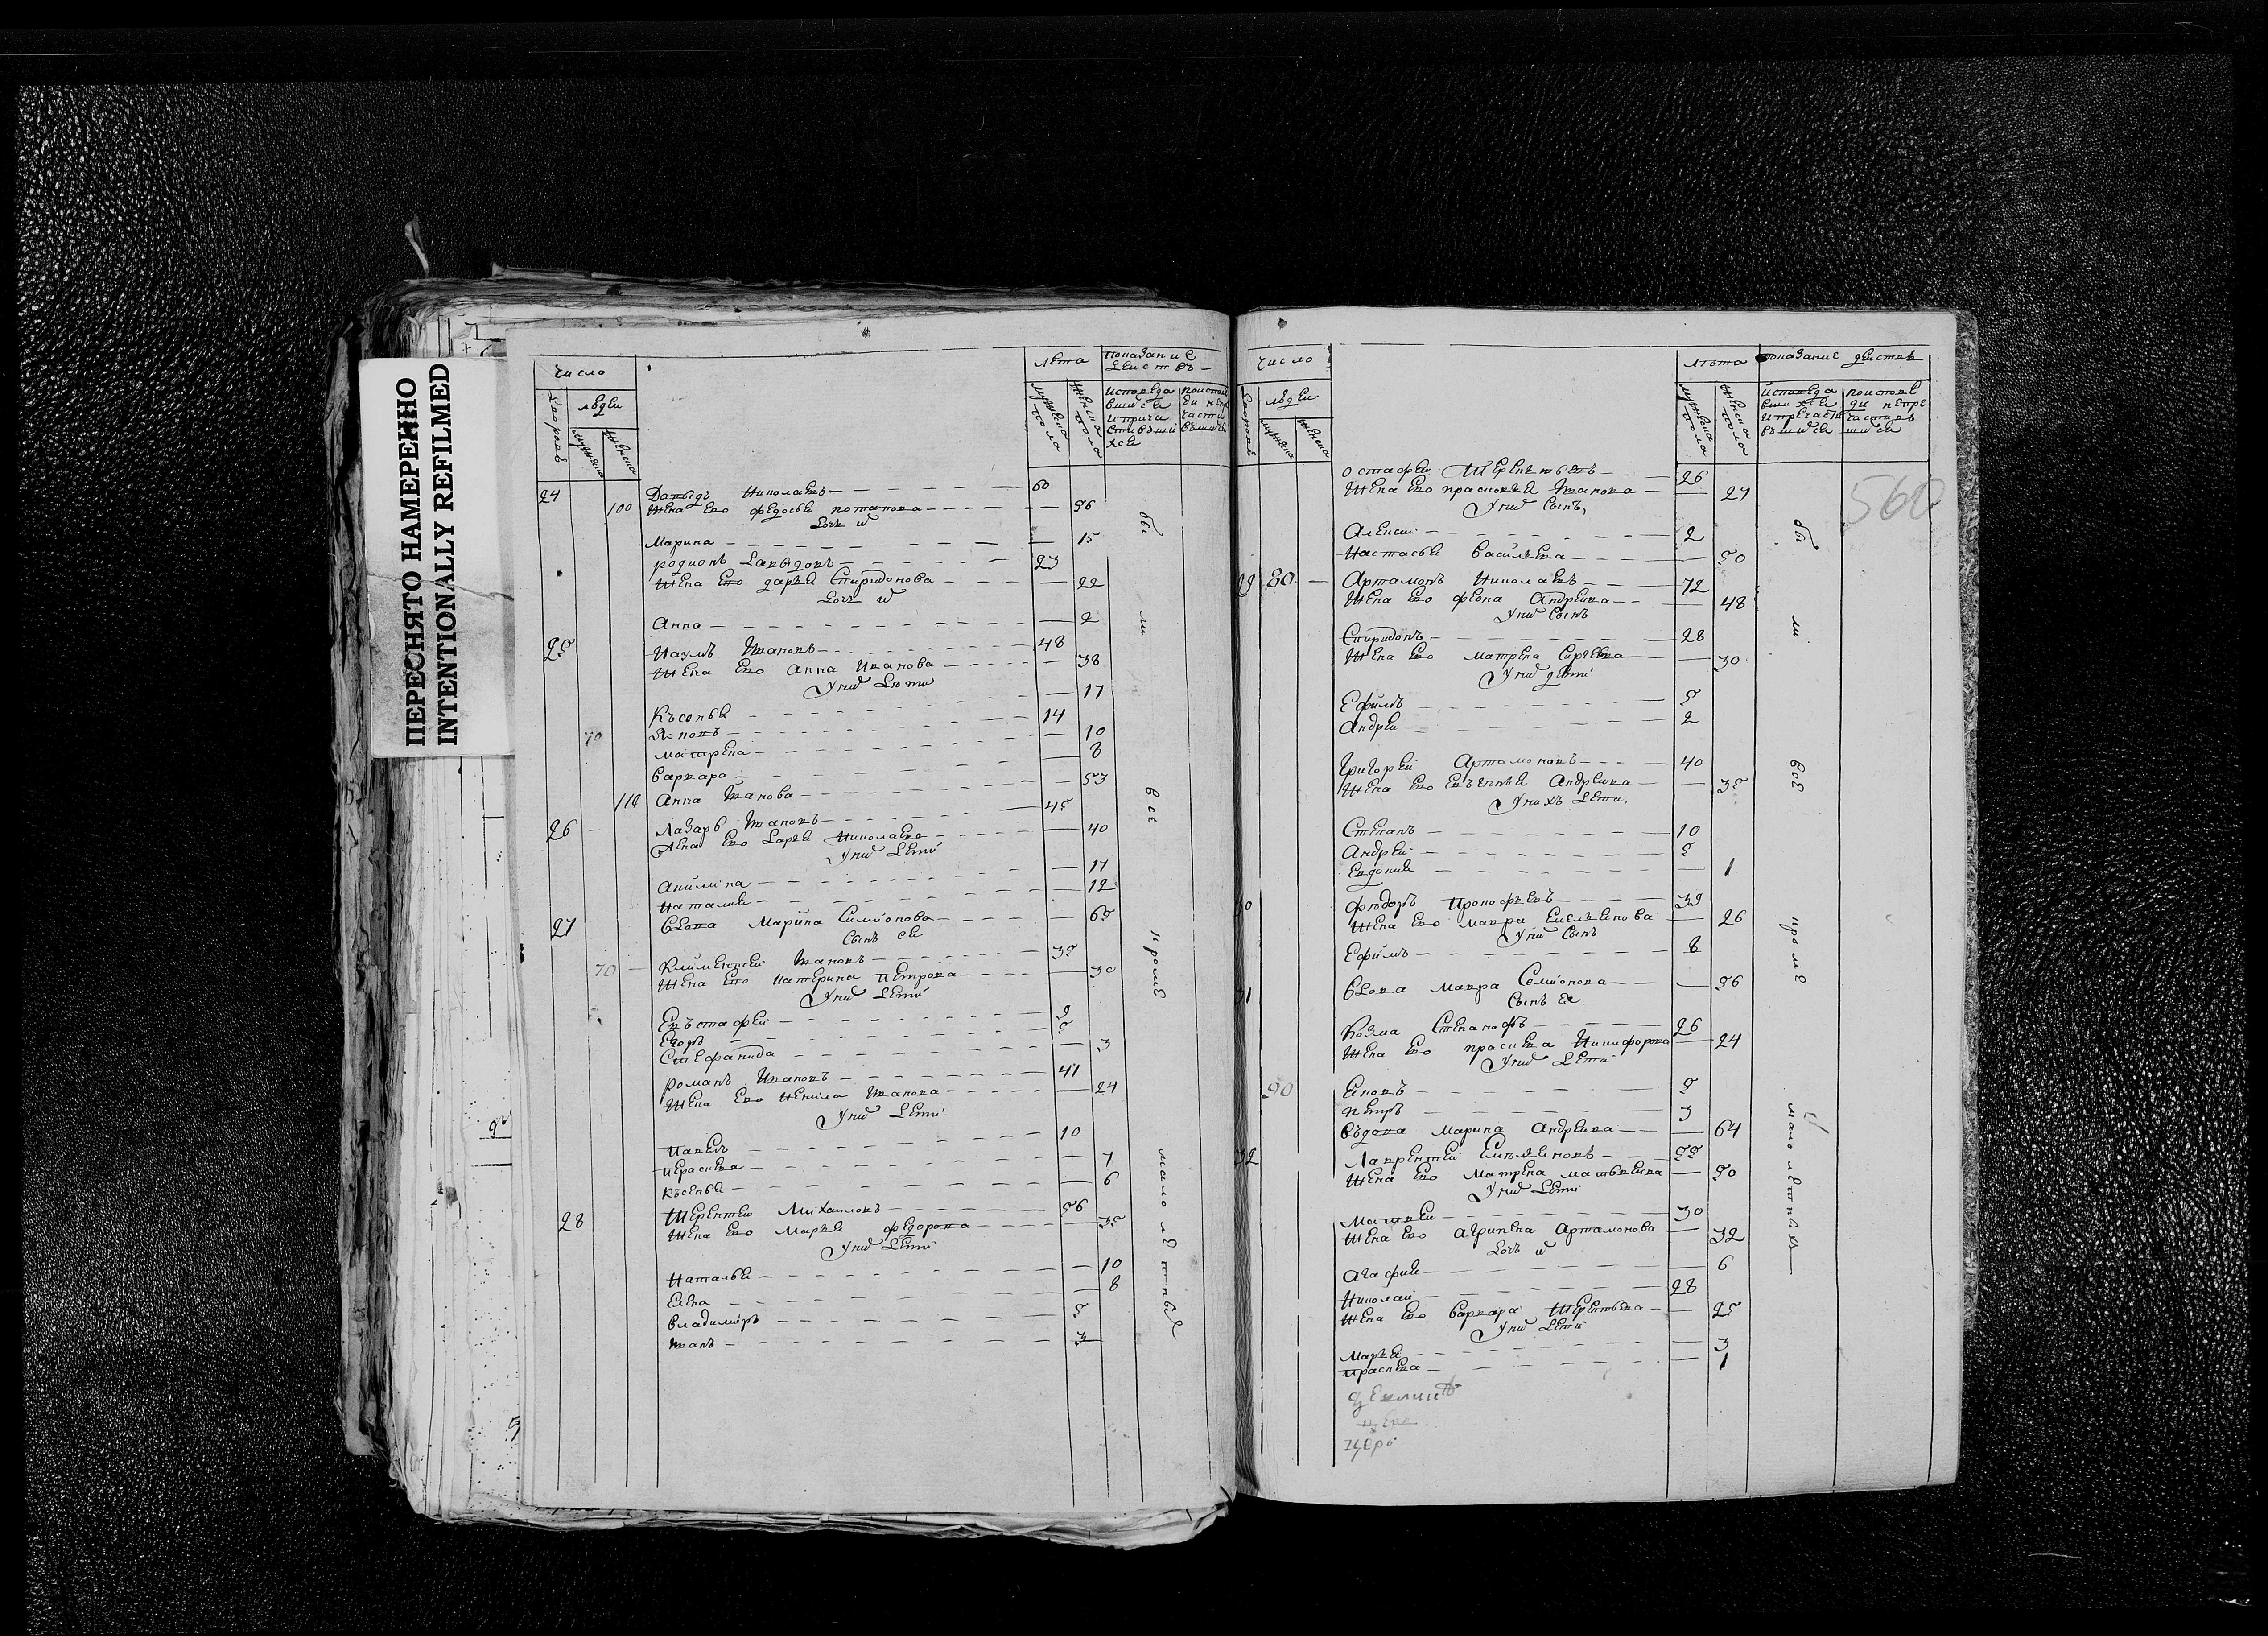 ПЕРЕСНЯТО НАМЕРЕННО
INTENTIONALLY REFILMED
число
людеи
лета
показание
деиствъ
мужеска пола
женска пола
24 Давыдъ николаевъ 60
100 жена ево федосья потапова 56
дочь их
марина 15
родионъ давыдовъ 23
жена ево дарья Спиридонова 22
дочь их
Анна 2
25 наумъ Ивановъ 48
жена ево Анна Иванова 38
у них дети
Къосенья 17
14
70
матрена 10
варвара 8
110 Анна Иванова 53
26 лазарь Ивановъ 45
жена ево дарья николаева 40
у них дети
Акилина 17
наталия 12
27 вдова марина Симионова 65
сынъ ея
70 Климентеи Ивановъ 35
жена ево катерина петрова 30
у них дети
Евъстафеи 9
Егоръ 5
Стефанида 3
романъ Ивановъ 41
жена ево Иванова 24
у них дети
павелъ 10
парасковья 7
къосенья 6
28 терентеи михаиловъ 56
жена ево марья федорова 35
у них дети
наталья 10
Елена 8
владимиръ 5
иванъ 3
бы ли все кроме малолетных
число
людеи
лета
показание деиствъ
560
остафеи терентьевъ 26
жена ево прасковья Иванова 27
у них сынъ
Алексеи 2
настасья васильева 50
29 80 Артамонъ николаевъ 72
жена ево фекла Андреива 48
у них сынъ
Спиридонъ 28
жена ево матрена Сиргеева 30
у них дети
Ефимъ 5
Андреи 2
Григореи Артамоновъ 40
жена ево Евъгенья Андреива 35
у них дети
Степанъ 10
Андреи 5
Евдокия 1
30 федоръ прокофьевъ 39
жена ево мавра Емельянова 26
у них сынъ
Ефимъ 8
31 вдова мавра Семионова 56
сынъ ея
козма Степановъ 26
жена ево прасковья никифорова 24
у них дети
90 5
петръ 3
въдова марина Андреива 64
32 лаврентеи Емельяновъ 55
жена ево матрена матвеива 50
у них дети
матвеи 30
жена ево агрипена Артамонова 32
дочь их
Агафия 6
николаи 28
жена ево варвара терентьева 25
у них дети
марья 3
прасковья 1
бы ли все кроме малолетныхъ